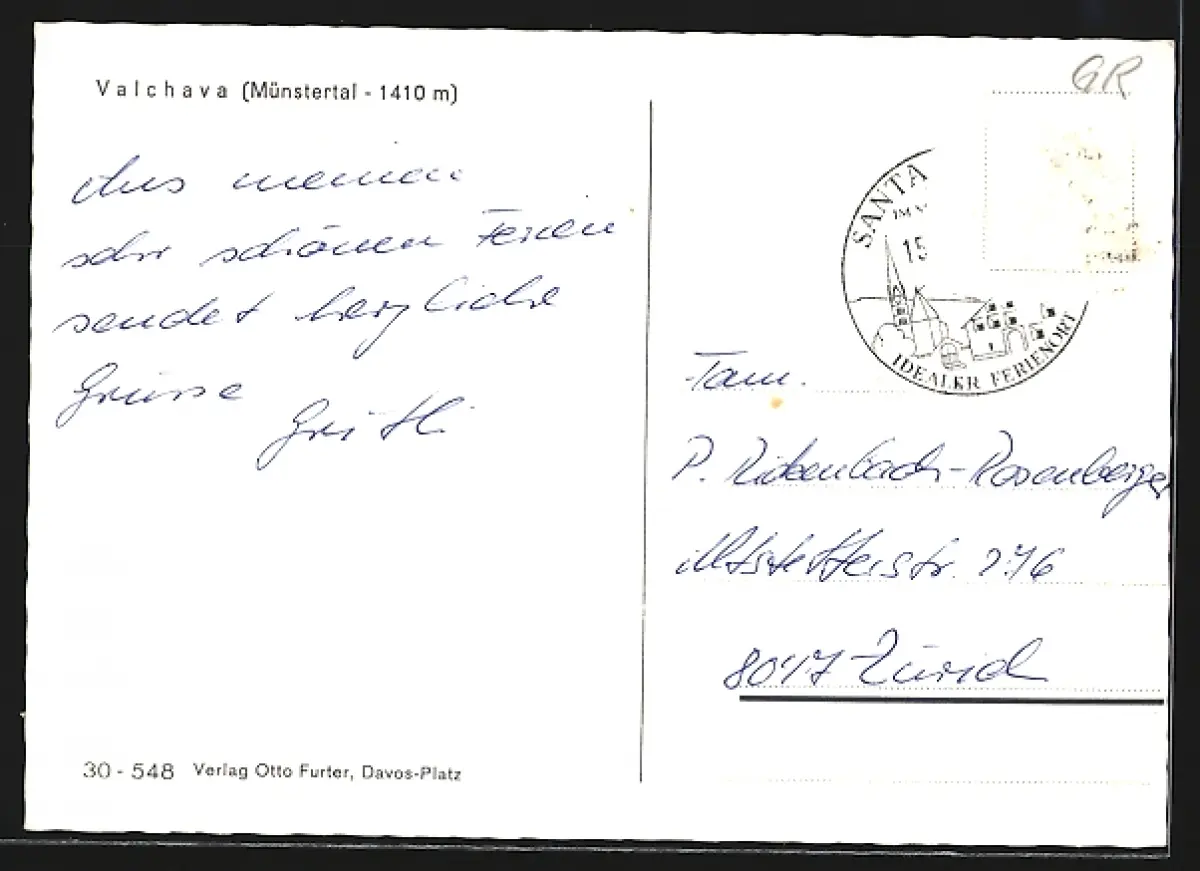 Valchava (Münstertal - 1410 m)
Aus meinen
sehr schönen Ferien
sendet herzliche
Grüsse
Greitli
30 - 548 Verlag Otto Furter, Davos-Platz
GR
SANTA
15
IDEALER FERIENORT
Fam.
P. Rickenbach-Rosenberger
Altstetterstr. 276
8047 Zürich